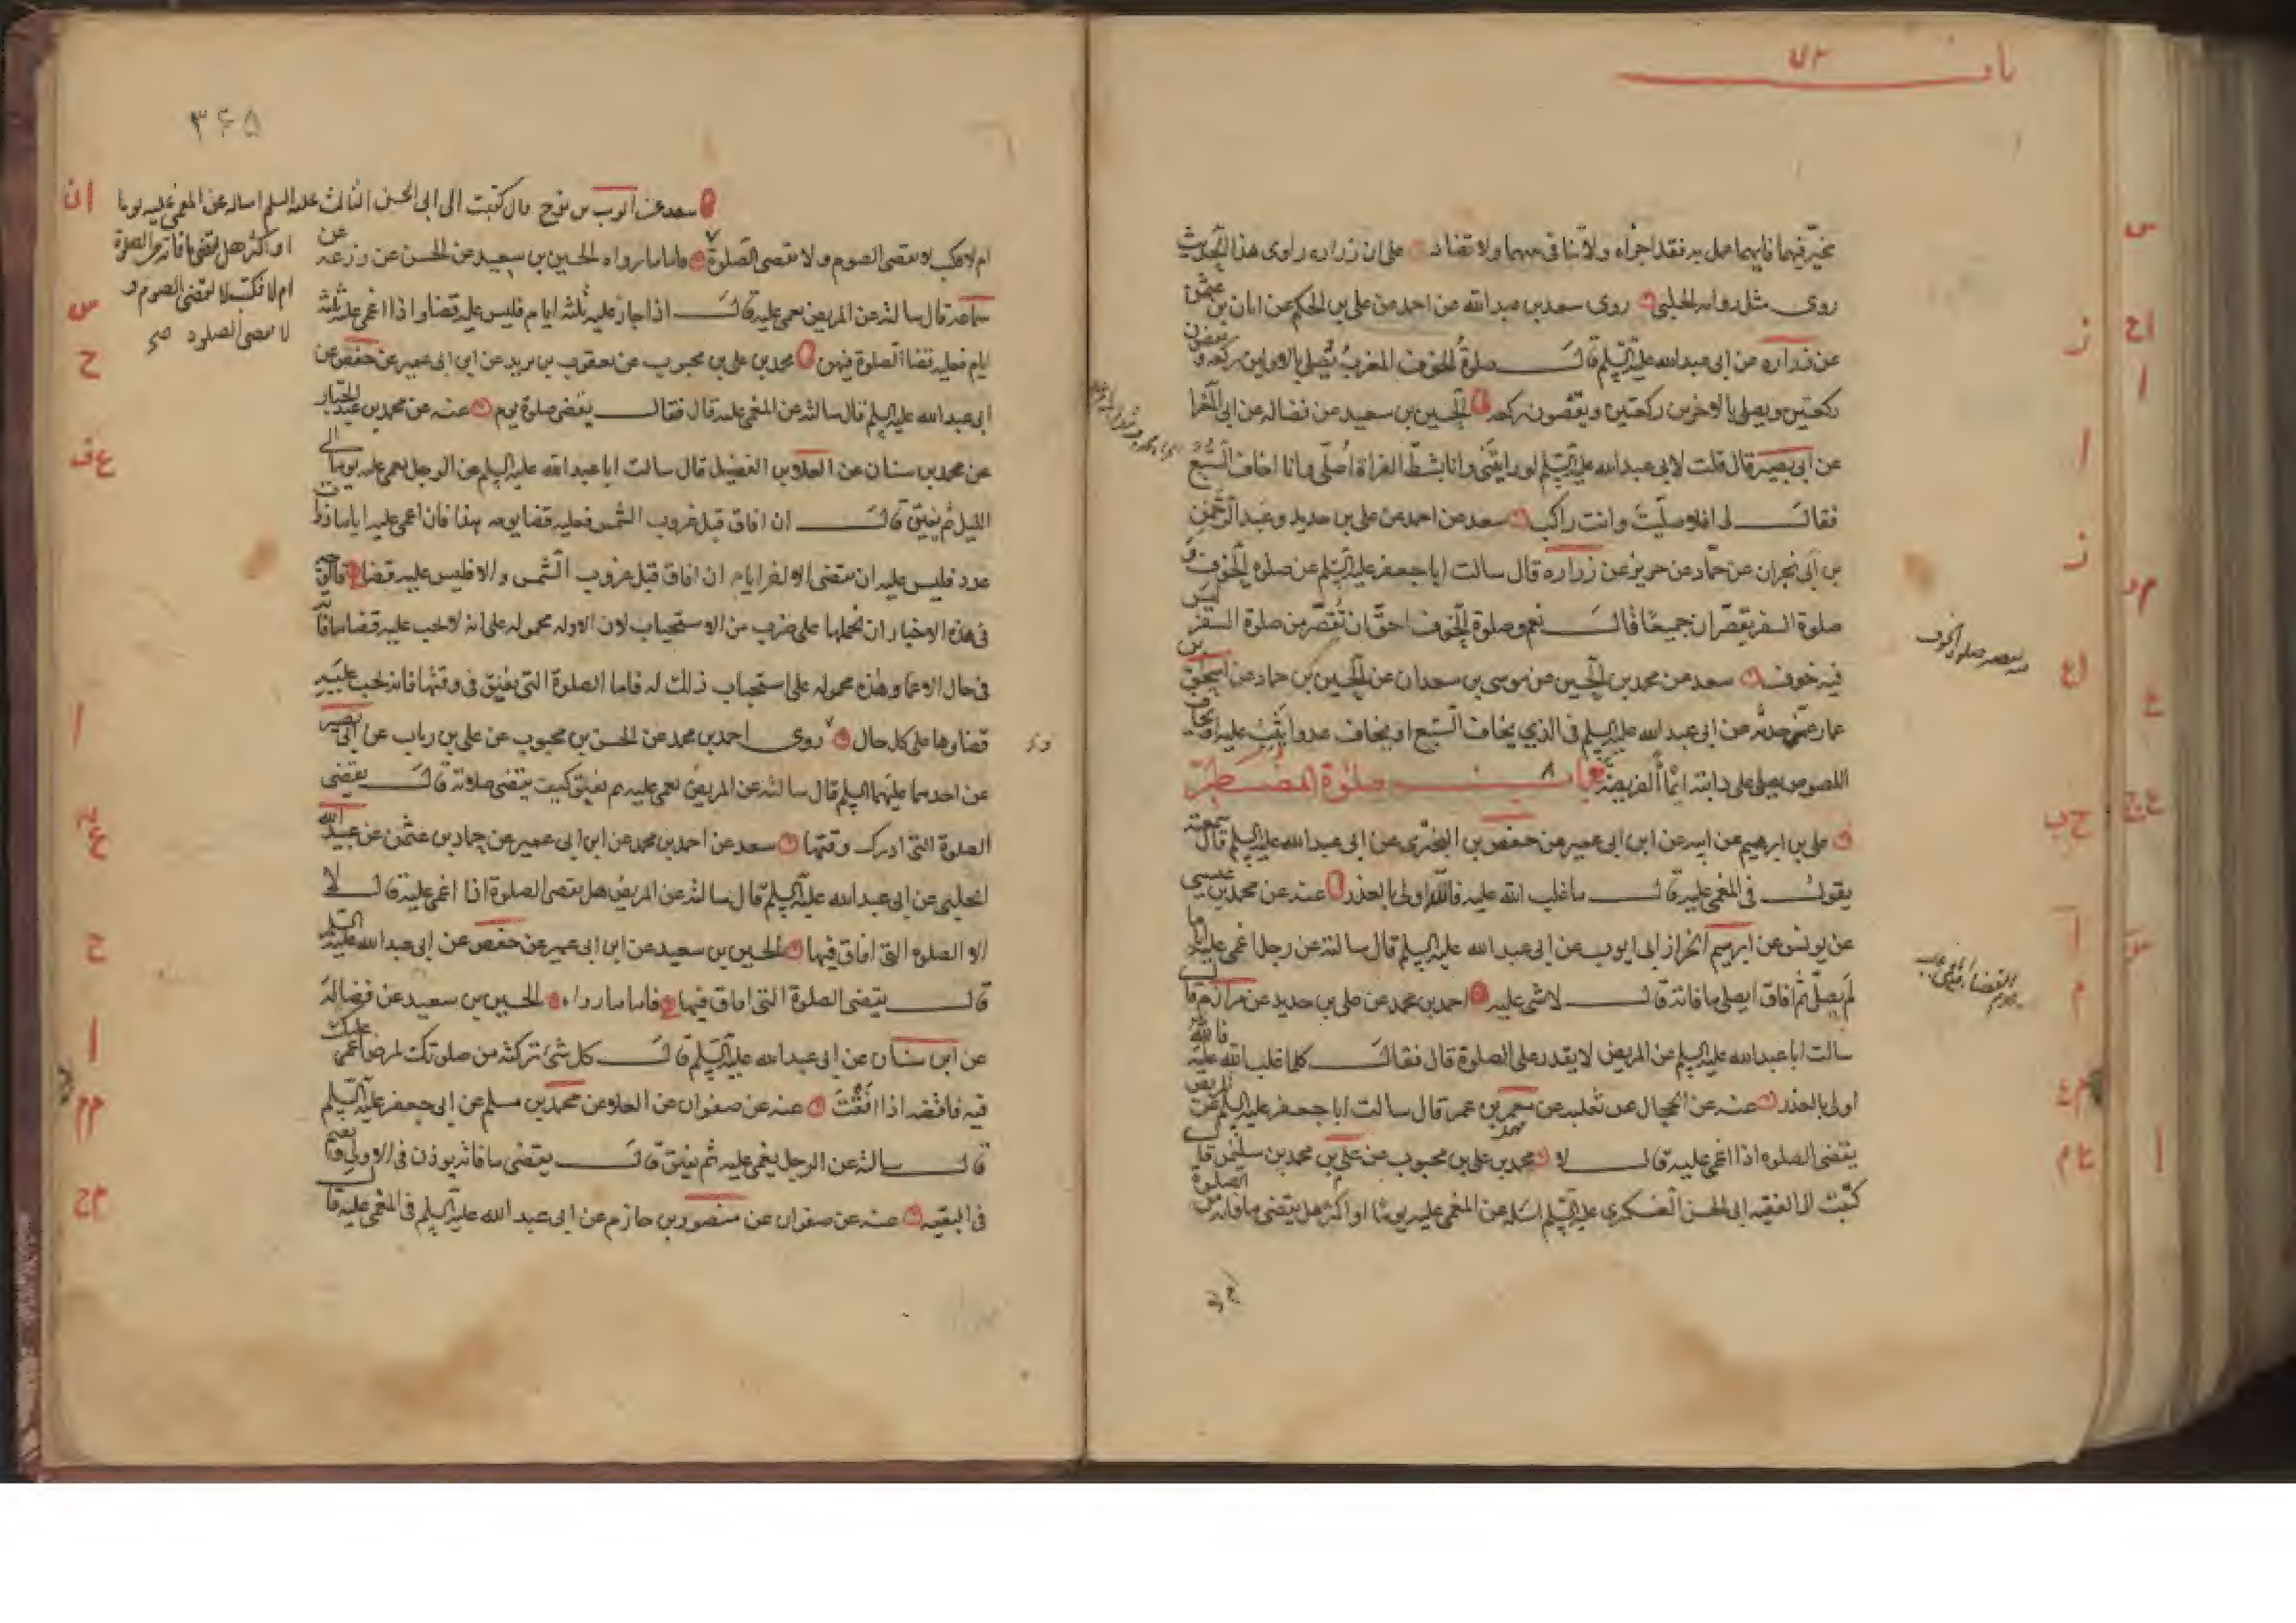 باب
مخيّر فيهما فايهما عمل به فقد اجزاه ولا تنافى بينهما ولا تضاد على ان زراره راوى هذا الحديث
روى مثل روايه الحلبى روى سعد بن عبدالله عن احمد عن على بن الحكم عن ابان بن عثمن
عن زراره عن ابى عبدالله عليه السّلم قال صلوةُ الخوف المغربُ يُصلى بالاولين ركعه ويقضون
ركعتين ويصلى بالاخرين ركعتين ويقضون ركعه الحسين بن سعيد عن فضاله عن ابى المغرا
عن ابى بصير قال قلت لابى عبدالله عليه السّلم لو رايتَنى وانا بشطّ الفراة اُصلّى وانا اخاف السَّبُعَ
فقال لى افلا صلّيتَ وانت راكب سعد عن احمد عن على بن حديد وعبد الرّحمن
بن ابى نجران عن حمّاد عن حريز عن زراره قال سالت ابا جعفر عليه السّلم عن صلوه الخوف و
صلوة السفر يقصّران جميعًا قال نعم وصلوة الخوف احقّ ان تُقصّر من صلوة السفر ليس
فيه خوف سعد عن محمد بن الحسين عن موسى بن سعدان عن الحسين بن حماد عن اسحق بن
عمار عمّن حدثه عن ابى عبدالله عليه السلم فى الذى يخاف السّبع او يخاف عدوا يَثِبُ عليه او يخاف
اللصوص يصلى على دابته ايمًا الفريضة باب صلوة المضطر
على بن ابرهيم عن ابيه عن ابن ابى عمير عن حفص بن البخترى عن ابى عبدالله عليه السلم قال سمعته
يقول فى المغمى عليه قال ما غلب الله عليه فالله اولى بالعذر عنه عن محمد بن عيسى
عن يونس عن ابرهيم الخراز ابى ايوب عن ابى عبدالله عليه السلم قال سالته عن رجل اغمى عليه اياما
لم يصلّ ثم افاق ايصلى ما فاته قال لا شى عليه احمد بن محمد عن على بن حديد عن مرازم قال
سالت ابا عبدالله عليه السلم عن المريض لا يقدر على الصلوة قال فقال كلما غلب الله عليه فالله
اولى بالعذر عنه عن الحجال عن ثعلبه عن معمر بن عمر قال سالت ابا جعفر عليه السلم عن المريض
يقضى الصلوه اذا اغمى عليه قال لا محمد بن على بن محبوب عن على بن محمد بن سليمن قال
كتبت الى الفقيه ابى الحسن العسكرى عليه السّلم اسئله عن المغمى عليه يومًا او اكثر هل يقضى ما فاته من الصلوة
٣۶۵
سعد عن ايوب بن نوح قال كتبت الى ابى الحسن الثالث عليه السلم اساله عن المغمى عليه يوما
او اكثر هل يقضى ما فاته من الصلوة
ام لا فكتب لا يقضى الصوم و
لا يقضى الصلوه صح
ام لا فكتب لا يقضى الصوم ولا يقضى الصّلوة فاما ما رواه الحسين بن سعيد عن الحسن عن زرعه عن
سماعه قال سالته عن المريض يغمى عليه قال اذا جاز عليه ثلثه ايام فليس عليه قضا واذا اغمى عليه ثلثة
ايام فعليه قضا الصلوة فيهن محمد بن على بن محبوب عن يعقوب بن يزيد عن ابن ابى عمير عن حفص عن
ابى عبدالله عليه السلم قال سالته عن المغمى عليه قال فقال يقضى صلوة يوم عنه عن محمد بن عبد الجبار
عن محمد بن سنان عن العلا بن الفضيل قال سالت ابا عبدالله عليه السلم عن الرجل يغمى عليه يومًا الى
الليل ثم يفيق قال ان افاق قبل غروب الشمس فعليه قضا يومه هذا فان اغمى عليه اياما ذوات
عدد فليس عليه ان يقضى الا اخر ايامه ان افاق قبل غروب الشمس والا فليس عليه قضا فالوجه
فى هذه الاخبار ان نحملها على ضرب من الاستحباب لان الاوله محموله على انه لا يجب عليه قضا ما فاته
فى حال الاغما وهذه محموله على استحباب ذلك له فاما الصلوة التى يفيق فى وقتها فانه يجب عليه
قضاوها على كل حال روى احمد بن محمد عن الحسن بن محبوب عن على بن رياب عن ابى بصير
عن احدهما عليهما السلم قال سالته عن المريض يغمى عليه ثم يفيق كيف يقضى صلاته قال يقضى
الصلوة التى ادرك وقتها سعد عن احمد بن محمد عن ابن ابى عمير عن حماد بن عثمن عن عبيدالله
الحلبى عن ابى عبدالله عليه السلم قال سالته عن المريض هل يقضى الصلوة اذا اغمى عليه قال لا
الا الصلوه التى افاق فيها الحسين بن سعيد عن ابن ابى عمير عن حفص عن ابى عبدالله عليه السلم
قال يقضى الصلوة التى افاق فيها فاما ما رواه الحسين بن سعيد عن فضاله
عن ابن سنان عن ابى عبدالله عليه السّلم قال كل شئ تركته من صلوتك لمرض اغمى عليك
فيه فاقضه اذا افقْتَ عنه عن صفوان عن العلا عن محمد بن مسلم عن ابى جعفر عليه السّلم
قال سالته عن الرجل يغمى عليه ثم يفيق قال يقضى ما فاته يوذن فى الاولى ويقيم
فى البقيه عنه عن صفوان عن منصور بن حازم عن ابى عبدالله عليه السلم فى المغمى عليه قال